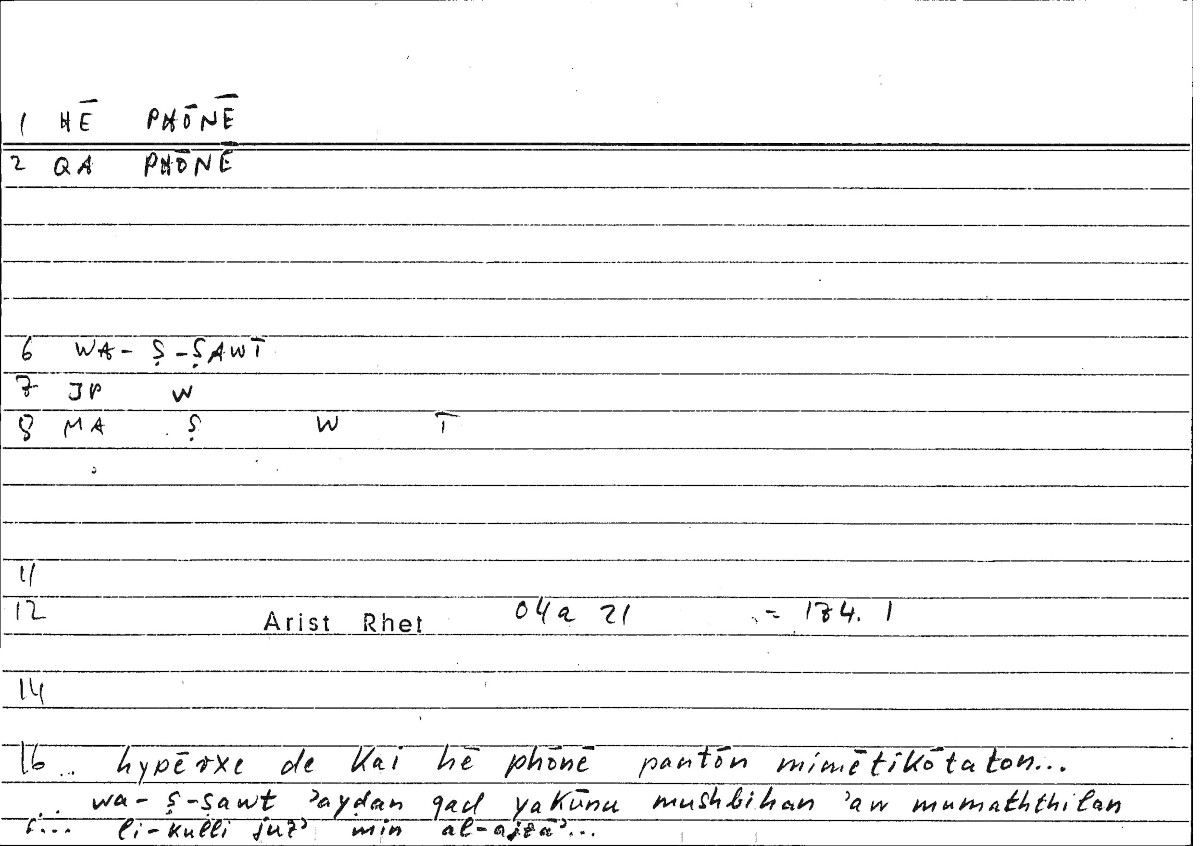 1 HĒ PHŌNĒ
2 QA PHŌNĒ
6 WA- Ṣ-ṢAWT
7 JP W
8 MA Ṣ W T
11
12 Arist Rhet 04a 21 = 174. 1
14
16 .. hypērxe de kai hē phōnē pantōn mimētikōtaton...
... wa-ṣ-ṣawt ʾayḍan qad yakūnu mushbihan ʾaw mumaththilan
... li-kulli juzʾ min al-ajzāʾ...